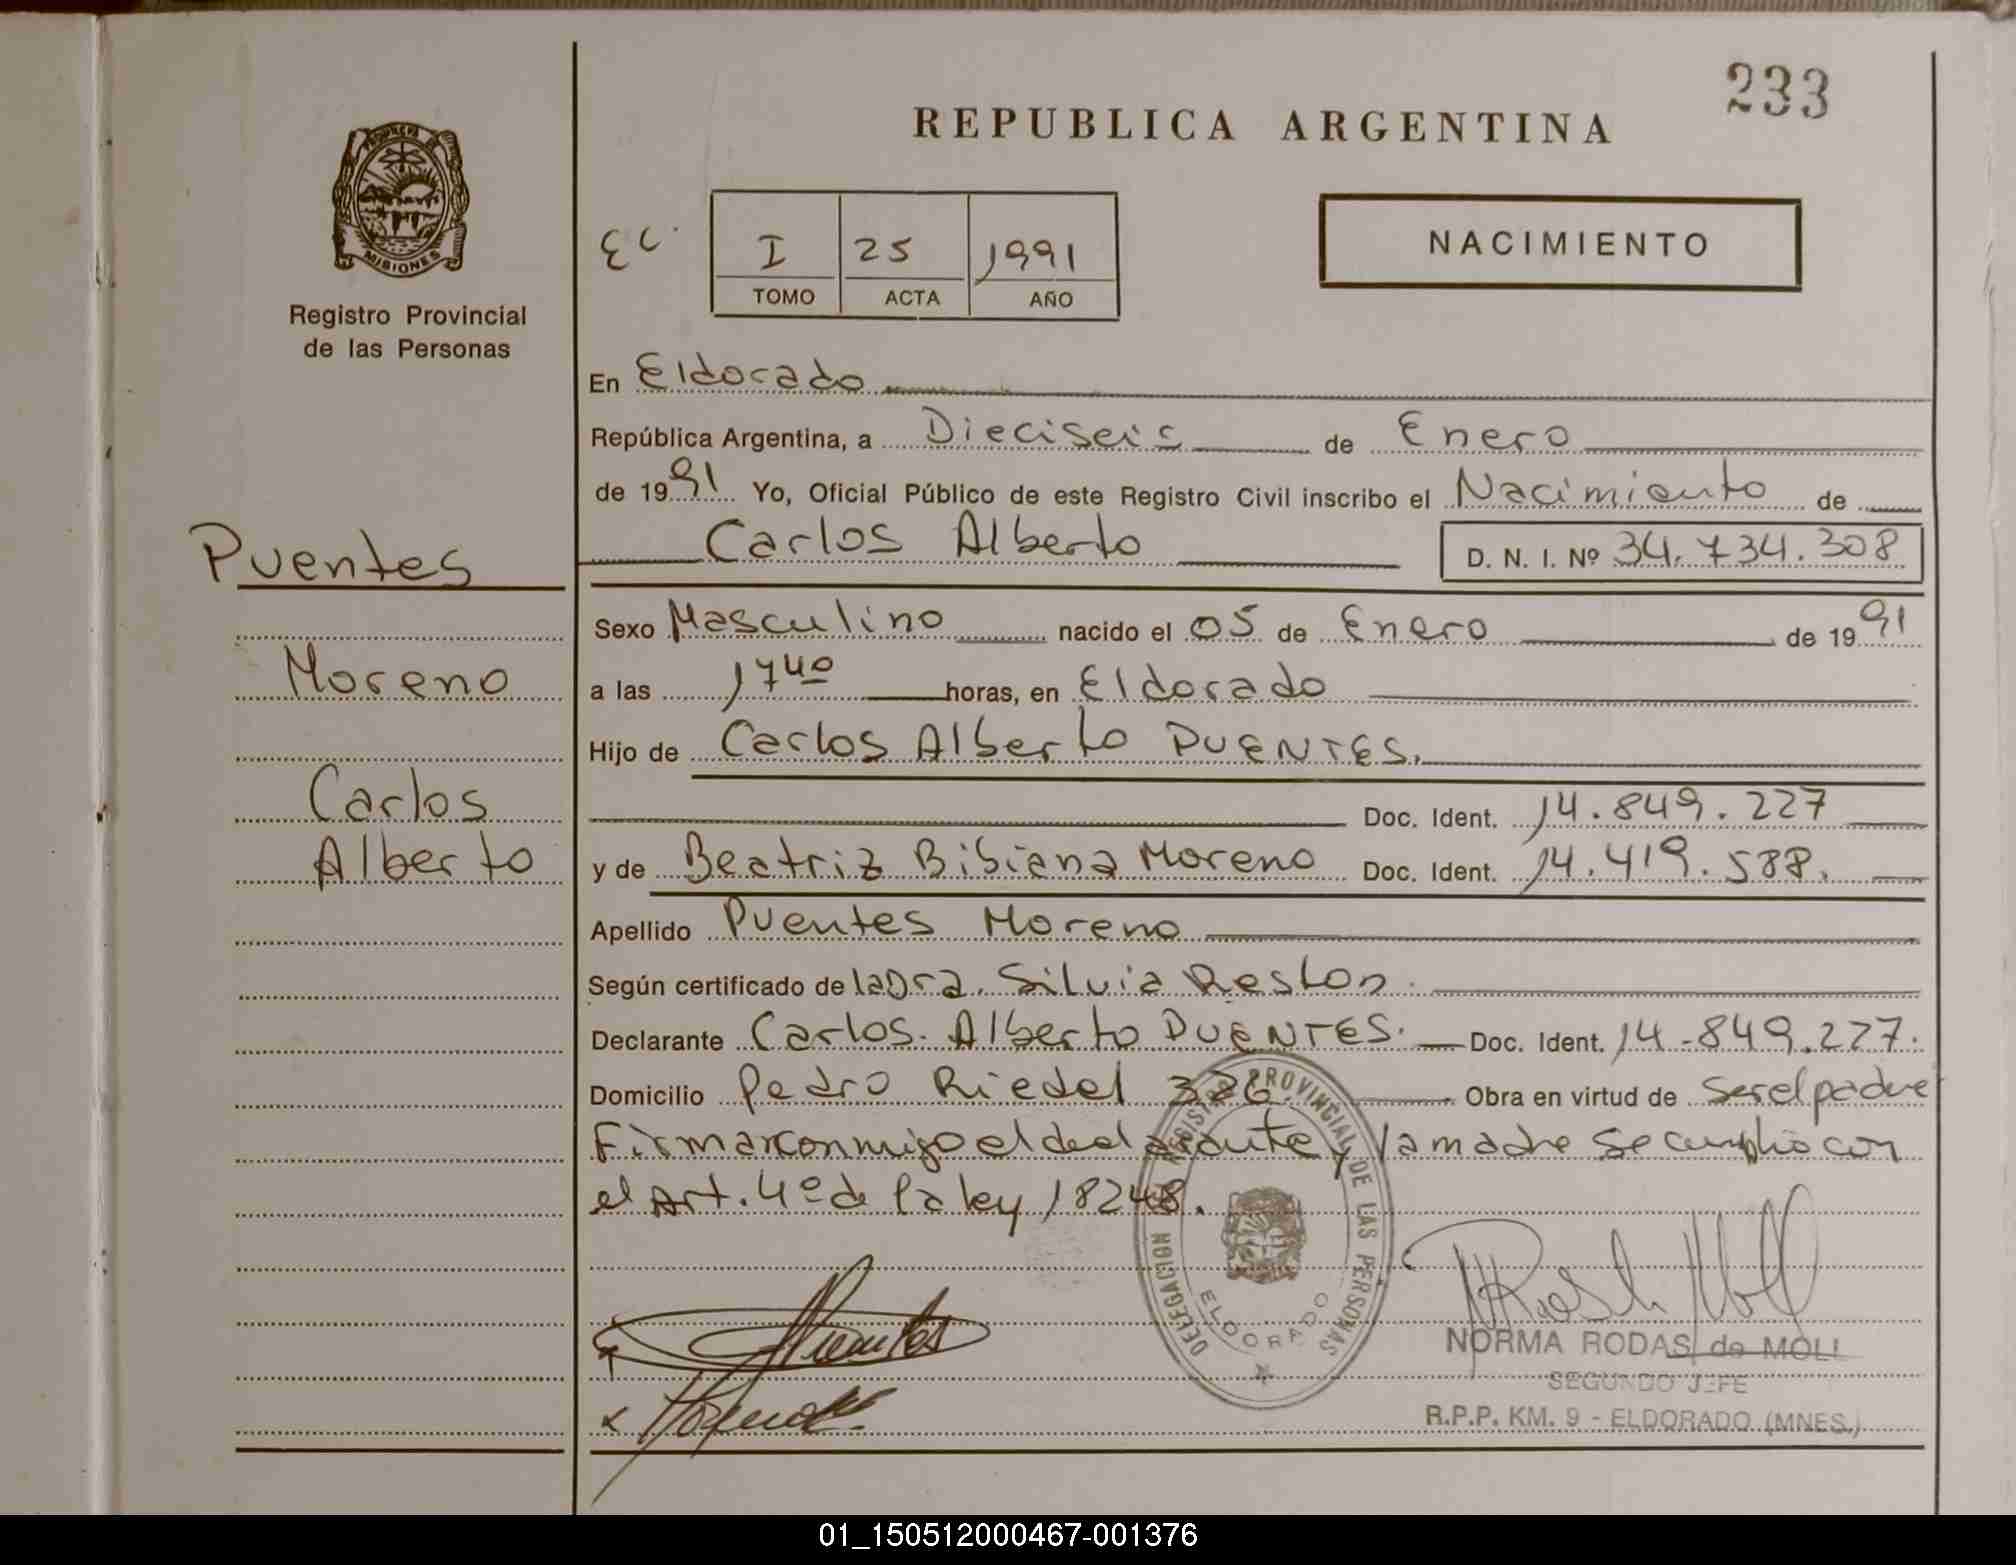 233
REPUBLICA ARGENTINA
PROVINCIA DE
MISIONES
Registro Provincial
de las Personas
EC.
I 25 1991
TOMO ACTA AÑO
NACIMIENTO
En Eldorado
República Argentina, a Dieciseis de Enero
de 1991 Yo, Oficial Público de este Registro Civil inscribo el Nacimiento de
Carlos Alberto D. N. I. Nº 34.734.308
Puentes
Moreno
Carlos
Alberto
Sexo Masculino nacido el 05 de Enero de 1991
a las 1740 horas, en Eldorado
Hijo de Carlos Alberto PUENTES.
Doc. Ident. 14.849.227
y de Beatriz Bibiana Moreno Doc. Ident. 14.419.588.
Apellido Puentes Moreno
Según certificado de la Dra. Silvia Reston.
Declarante Carlos. Alberto PUENTES. Doc. Ident. 14.849.227.
Domicilio Pedro Riedel 326 Obra en virtud de ser el padre
Firmar conmigo el declarante y la madre se cumplio con
el Art. 4º de la ley 18248.
DELEGACION REGISTRO PROVINCIAL DE LAS PERSONAS
ELDORADO
Puentes
NORMA RODAS de MOLL
SEGUNDO JEFE
R.P.P. KM. 9 - ELDORADO (MNES.)
01_150512000467-001376